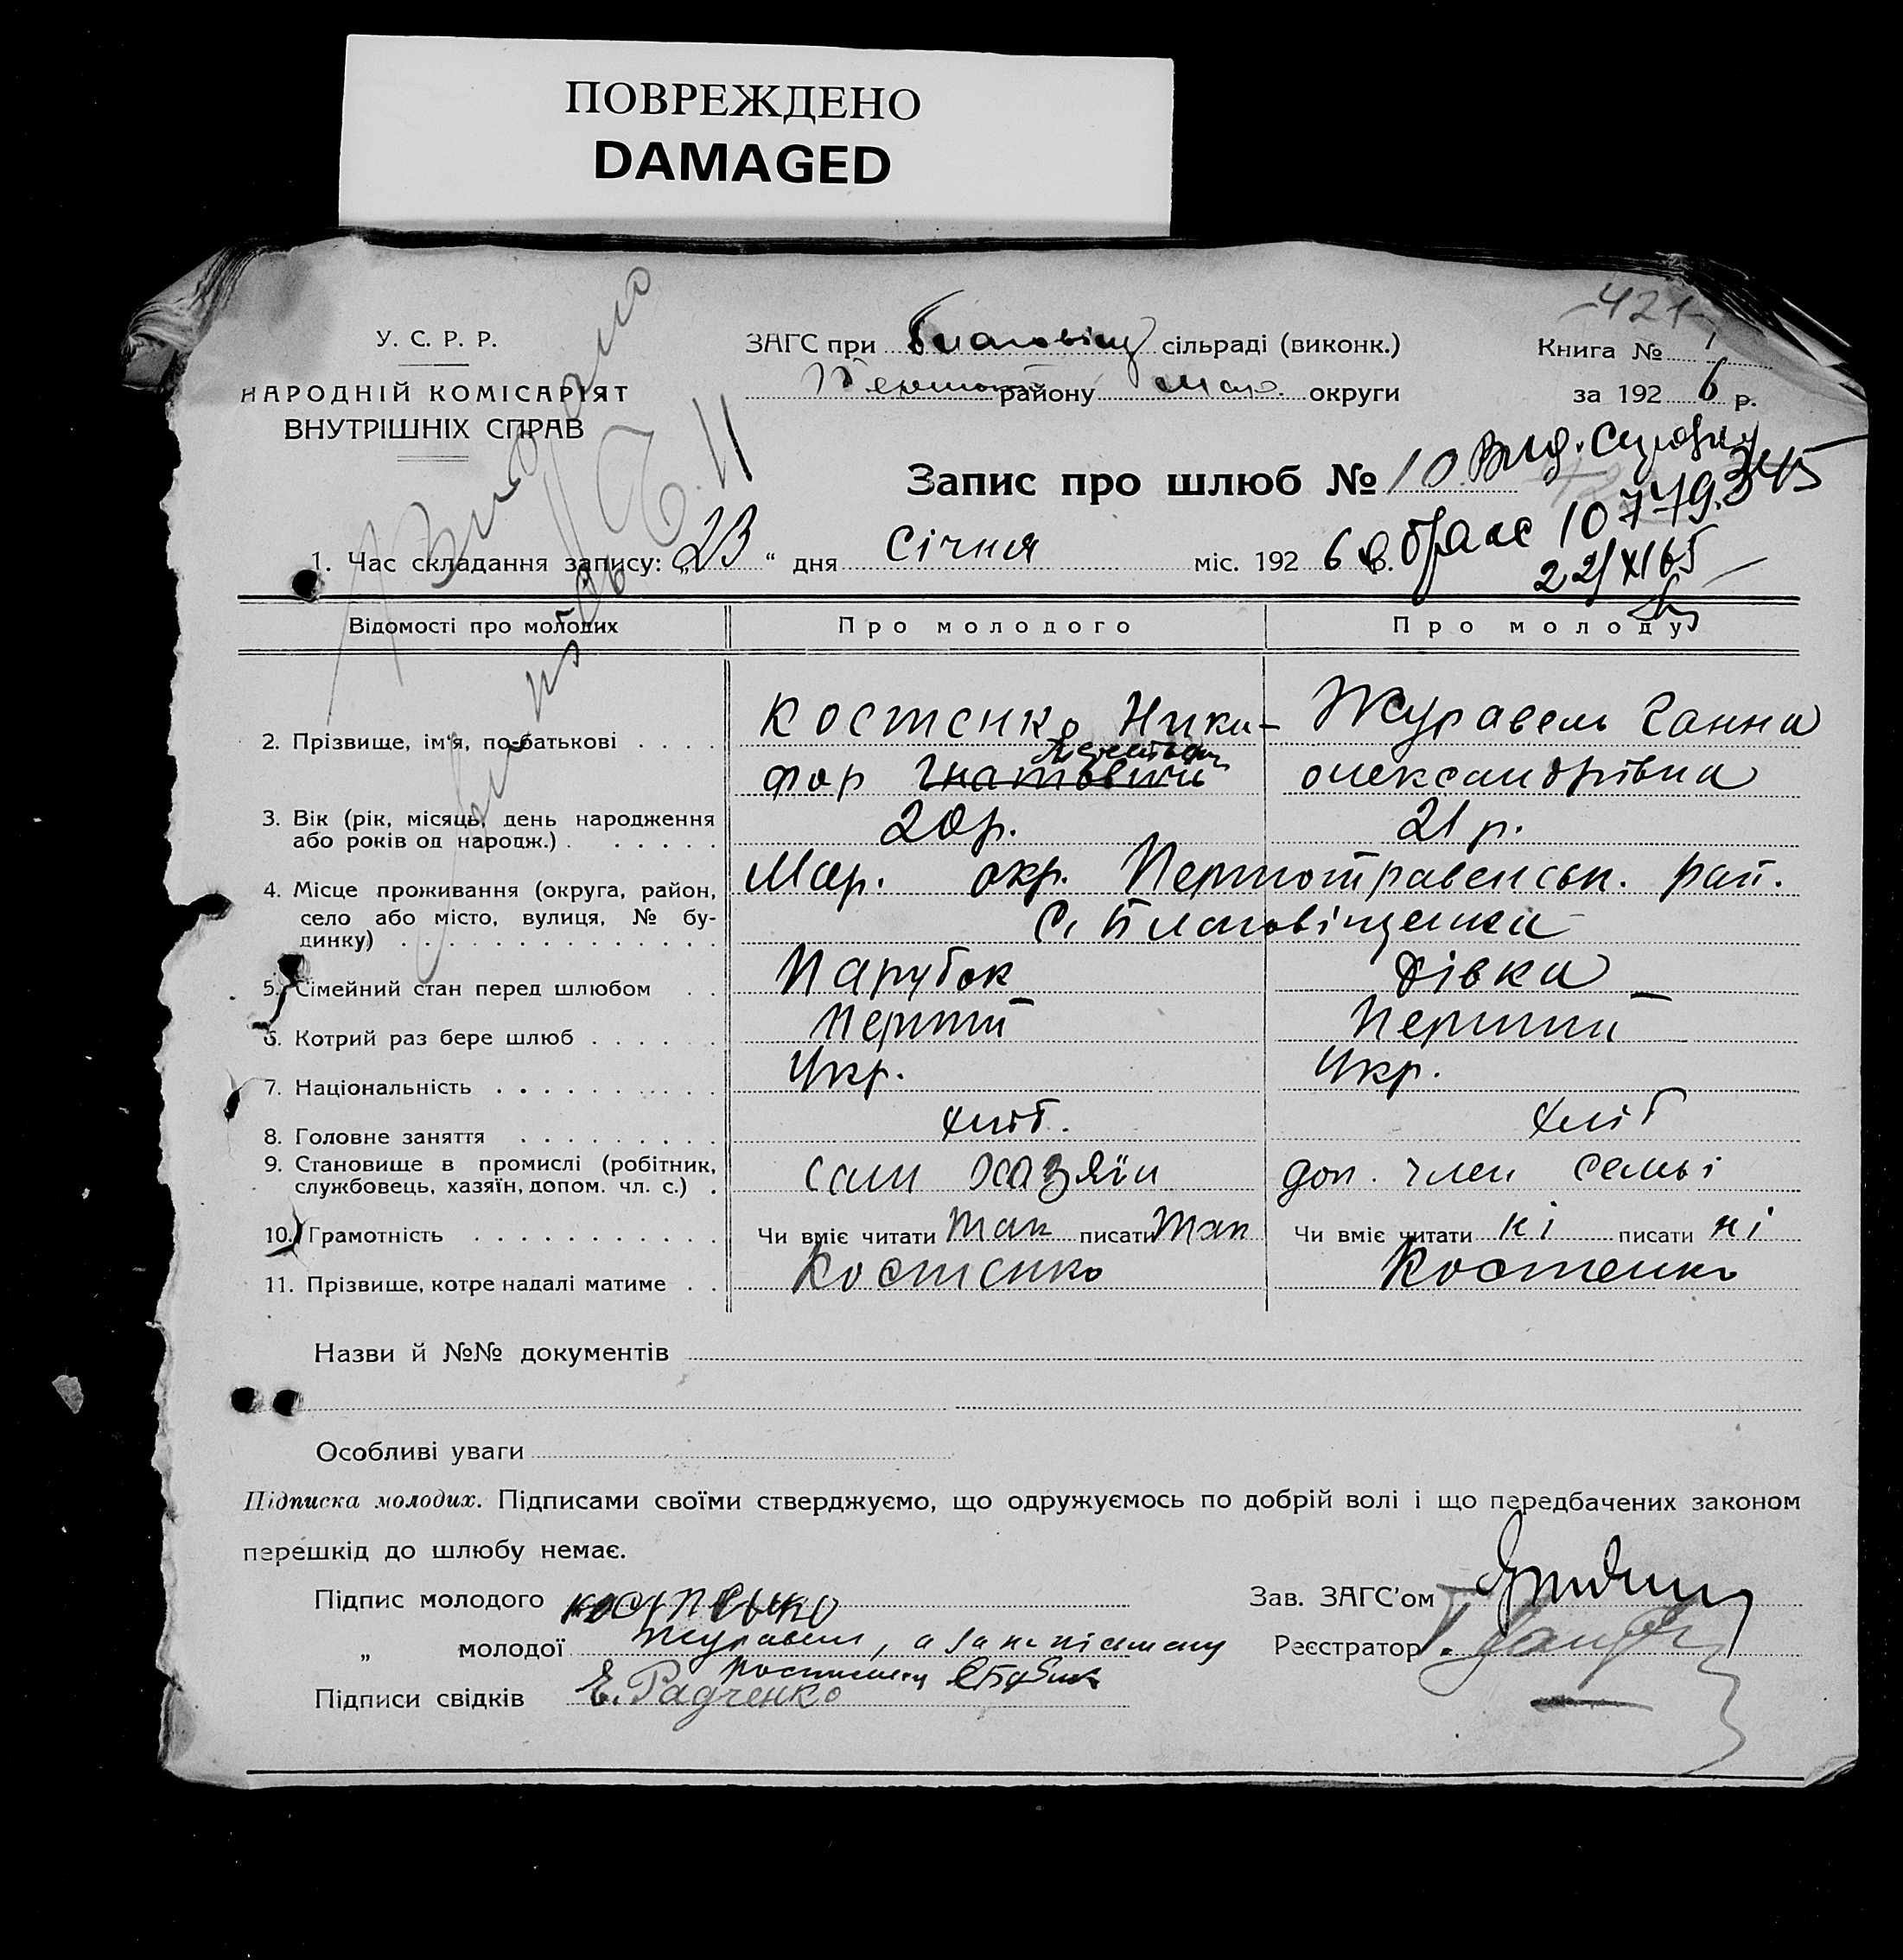 ПОВРЕЖДЕНО
DAMAGED
421
У. С. Р. Р.
НАРОДНІЙ КОМІСАРІЯТ
ВНУТРІШНІХ СПРАВ
ЗАГС при Благовіщ сільраді (виконк.)
району Мар. округи
Книга № 1
за 1926 р.
Запис про шлюб № 10
1. Час складання запису: „23“ дня Січня міс. 1926 р.
22/XI 65
Відомості про молодих Про молодого Про молоду
2. Прізвище, ім'я, по-батькові Костенко Ники- Журавель Ганна
фор Гнатович олександрівна
3. Вік (рік, місяць, день народження
або років од народж.) 20р. 21 р.
4. Місце проживання (округа, район, Мар. окр. Першотравенськ. рай.
село або місто, вулиця, № бу- С. Благовіщенка
динку)
5. Сімейний стан перед шлюбом Парубок дівка
6. Котрий раз бере шлюб Перший Перший
7. Національність Укр. Укр.
8. Головне заняття хліб. хліб
9. Становище в промислі (робітник,
службовець, хазяїн, допом. чл. с.) сам хазяїн доп. член семьі
10. Грамотність Чи вміє читати так писати так Чи вміє читати ні писати ні
11. Прізвище, котре надалі матиме Костенко Костенко
Назви й №№ документів
Особливі уваги
Підписка молодих. Підписами своїми стверджуємо, що одружуємось по добрій волі і що передбачених законом
перешкід до шлюбу немає.
Підпис молодого костенко Зав. ЗАГС'ом
„ молодої Журавель, а за неписьмену Реєстратор
Підписи свідків Е. Радченко